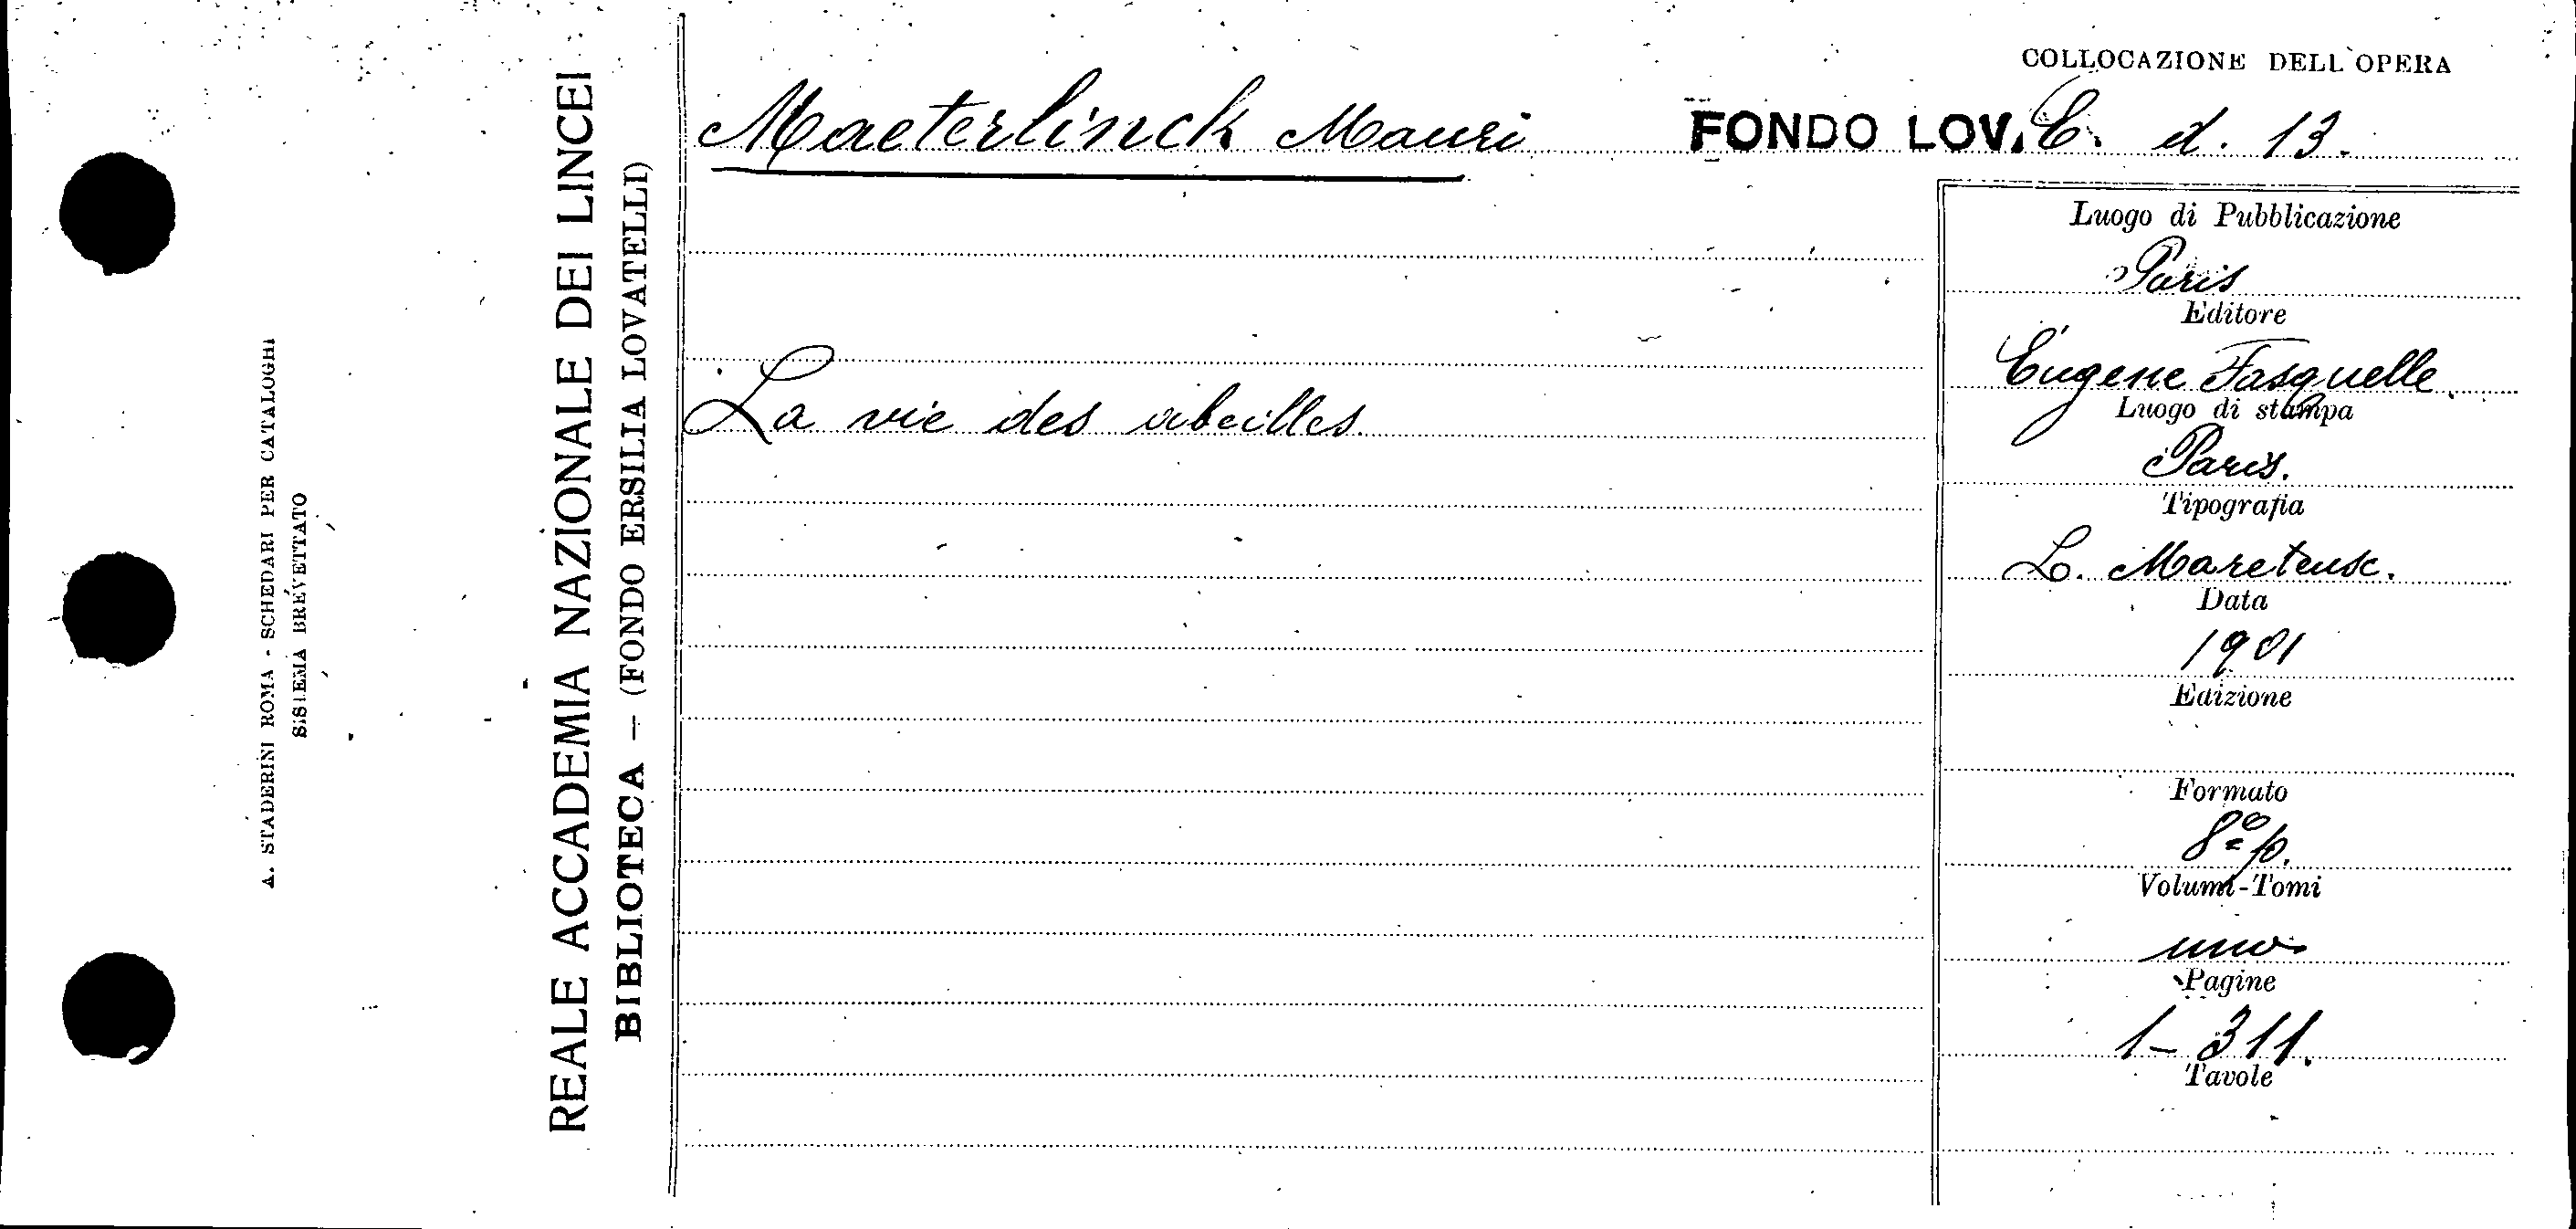 A. STADERINI ROMA - SCHEDARI PER CATALOGHI
SISTEMA BREVETTATO
REALE ACCADEMIA NAZIONALE DEI LINCEI
BIBLIOTECA — (FONDO ERSILIA LOVATELLI)
COLLOCAZIONE DELL'OPERA
Maeterlinck Mauri FONDO LOV. C. d. 13.
La vie des abeilles
Luogo di Pubblicazione
Paris
Editore
Eugene Fasquelle
Luogo di stampa
Paris.
Tipografia
L. Mareteusc.
Data
1901
Edizione
Formato
8º p.
Volumi-Tomi
uno
Pagine
1-311.
Tavole